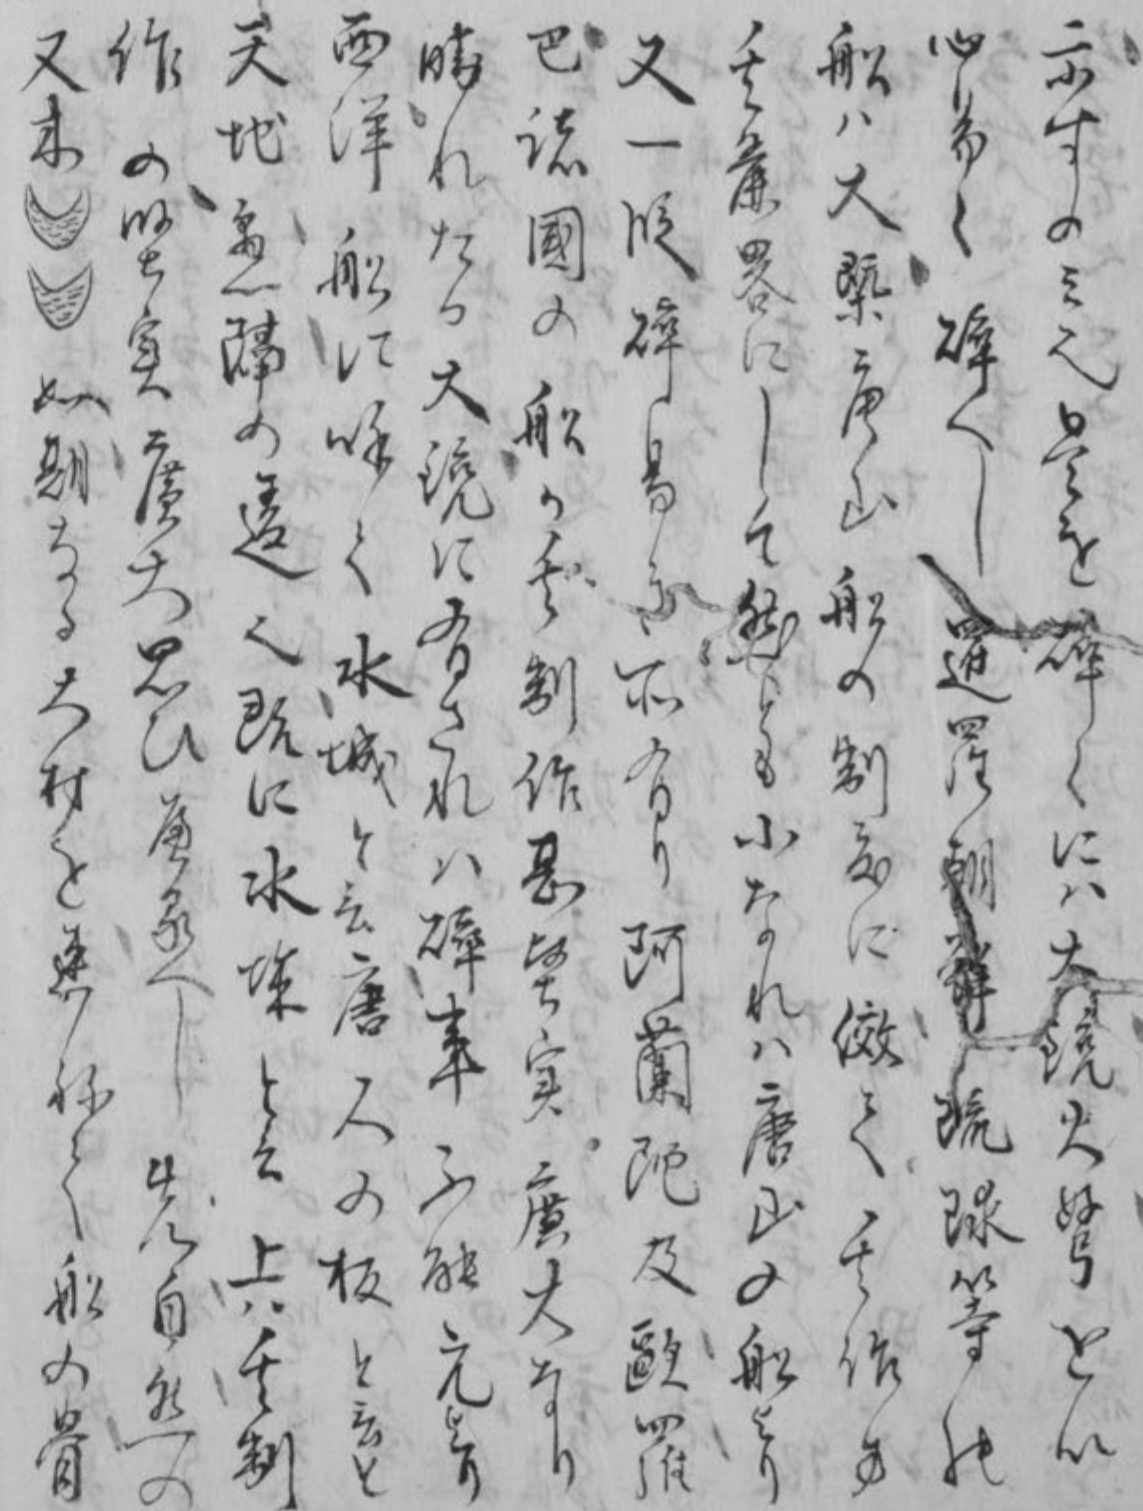 示すのミ也是を碎くにハ大銃火弩を以
心易く碎へし暹羅朝鮮琉球等の
船ハ大槩唐山船の制度に倣て其作方
其麁畧にして然も小なれハ唐山の船より
又一段碎易き所有り阿蘭陀及歐羅
巴諸國の船ハ其制作甚堅実廣大なり
勝れたる大銃に有されハ碎事不能元より
西洋船に咏て水城と云唐人の板と言と
天地懸隔の違也既に水城と云上ハ其制
作の堅実廣大思ひ量るへし先自然の
又木如期なる大材を連ねて船の骨